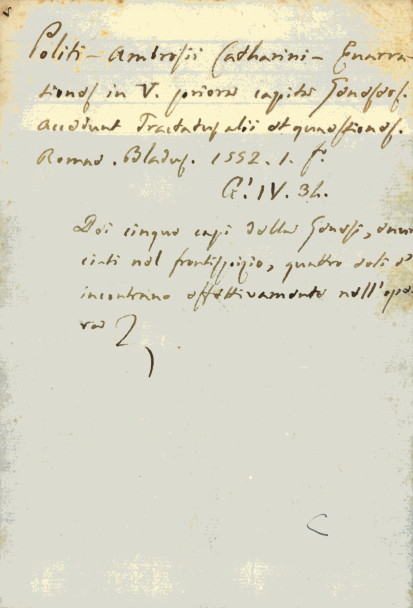 Politi – Ambrosii Catharini – Enarra-
tiones in V. priora capita Geneseos.
Accedunt Tractatus alii et quaestiones.
Romae. Bladus. 1552. 1. f.º
G.' IV. 34.
Dei cinque capi della Genesi, enun
ciati nel frontispizio, quattro soli s'
incontrano effettivamente nell'ope
ra